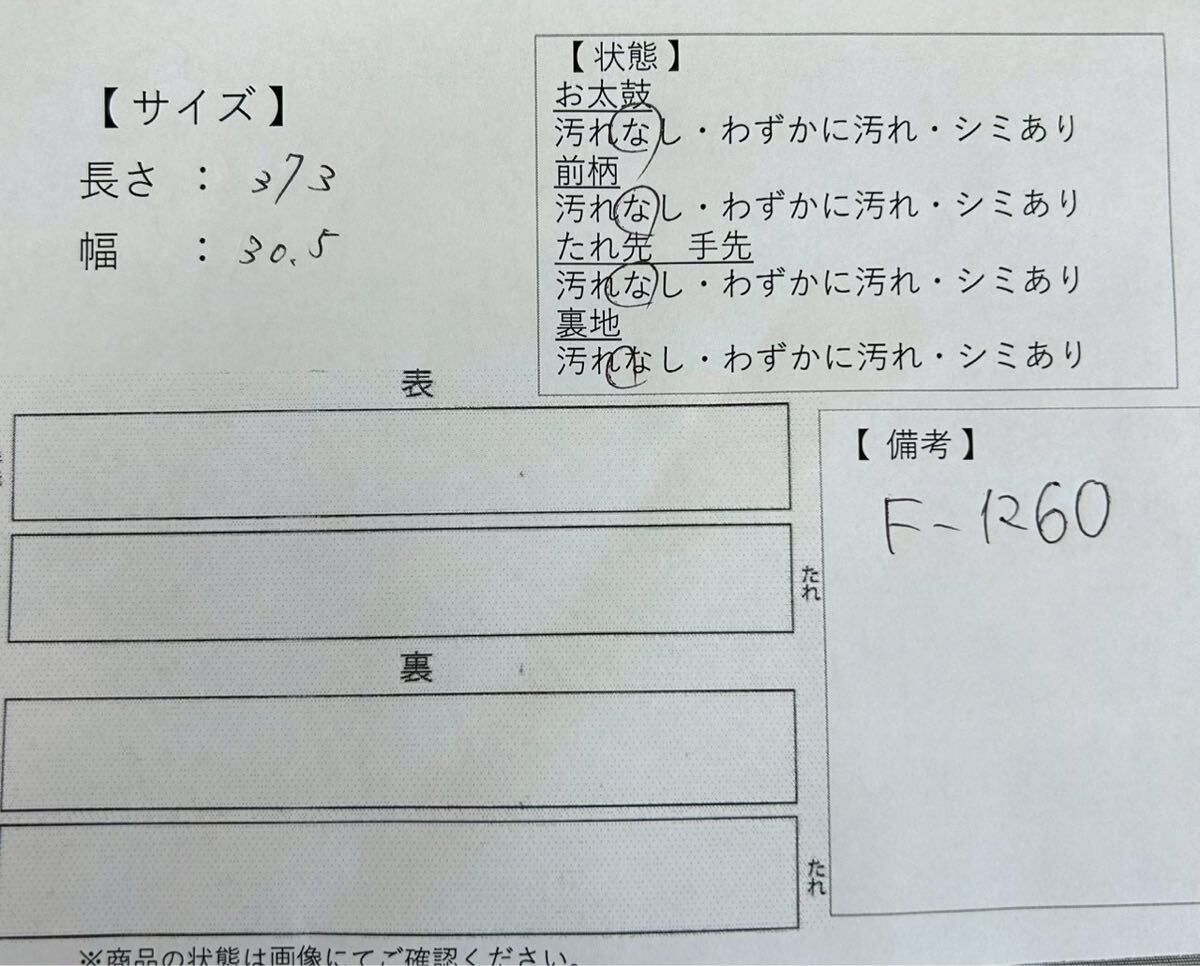 【サイズ】
長さ : 373
幅 : 30.5
【状態】
お太鼓
汚れなし・わずかに汚れ・シミあり
前柄
汚れなし・わずかに汚れ・シミあり
たれ先 手先
汚れなし・わずかに汚れ・シミあり
裏地
汚れなし・わずかに汚れ・シミあり
表
たれ
裏
たれ
【備考】
F-1260
※商品の状態は画像にてご確認ください。